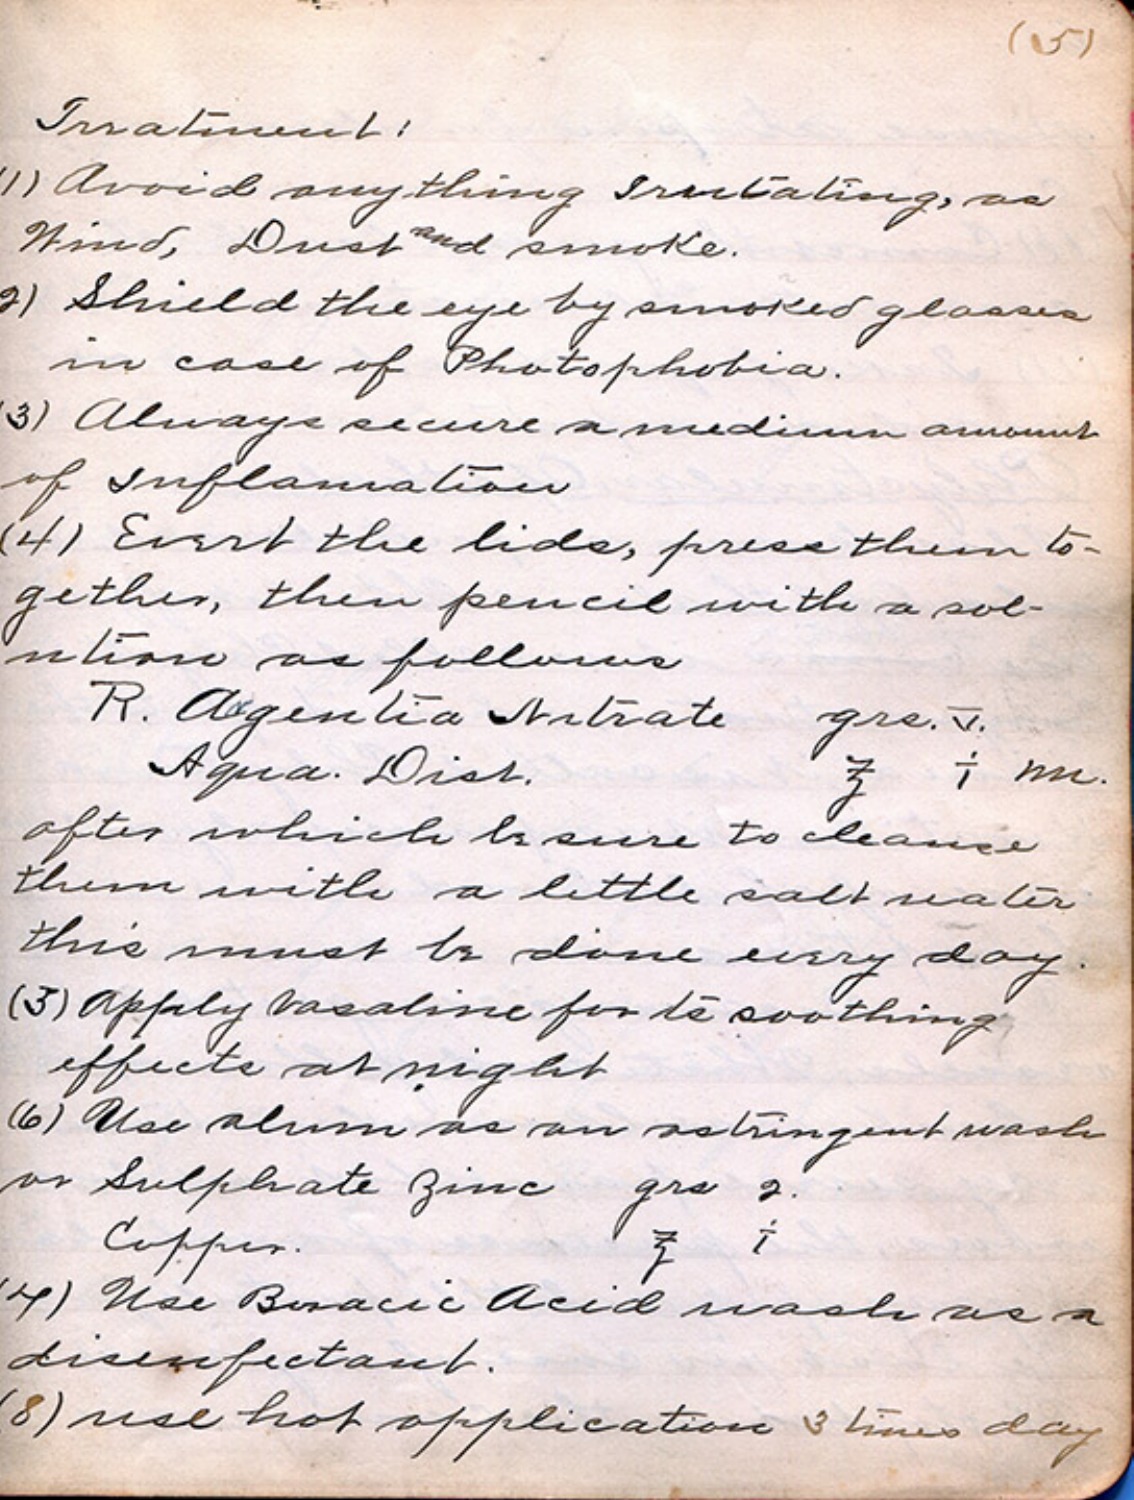 (5)
Treatment:
(1) Avoid anything Irritating, as
Wind, Dust and smoke.
2) Shield the eye by smoked glasses
in case of Photophobia.
(3) Always secure a medium amount
of Inflamation
(4) Evert the lids, press them to-
gether, then pencil with a sol-
ution as follows
R. Agentia Nitrate grs. v.
Aqua. Dist. ℥ i m.
after which be sure to cleanse
them with a little salt water
this must be done every day.
(5) Apply Vasaline for is soothing
effects at night
(6) Use alum as an astringent wash
or Sulphate Zinc grs 2.
Copper. ℥ i
(7) Use Boracic Acid wash as a
disenfectant.
(8) use hot application 3 times day